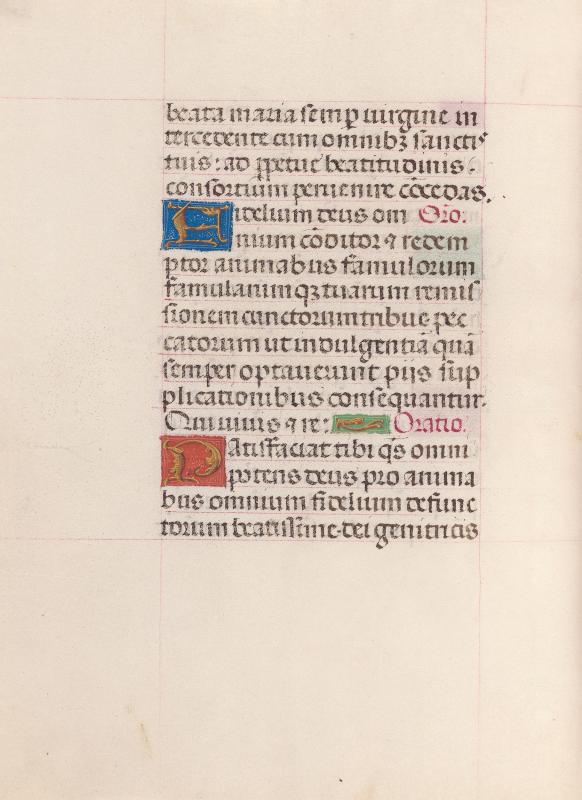 beata maria semp uirgine in
tercedente cum omnibꝫ sanctis
tuis: ad ꝑpetue beatitudinis
consortium peruenire cōcedas.
Fidelium deus om Oro.
nium cōditor ⁊ redem
ptor animabus famulorum
famularumqꝫ tuarum remis
sionem cunctorum tribue pec
catorum ut indulgentiā quā
semper optauerunt piis sup
plicationibus consequantur.
Qui uiuis ⁊ re: Oratio.
Satisfaciat tibi qs omni
potens deus pro anima
bus omnium fidelium defunc
torum beatissime dei genitricis